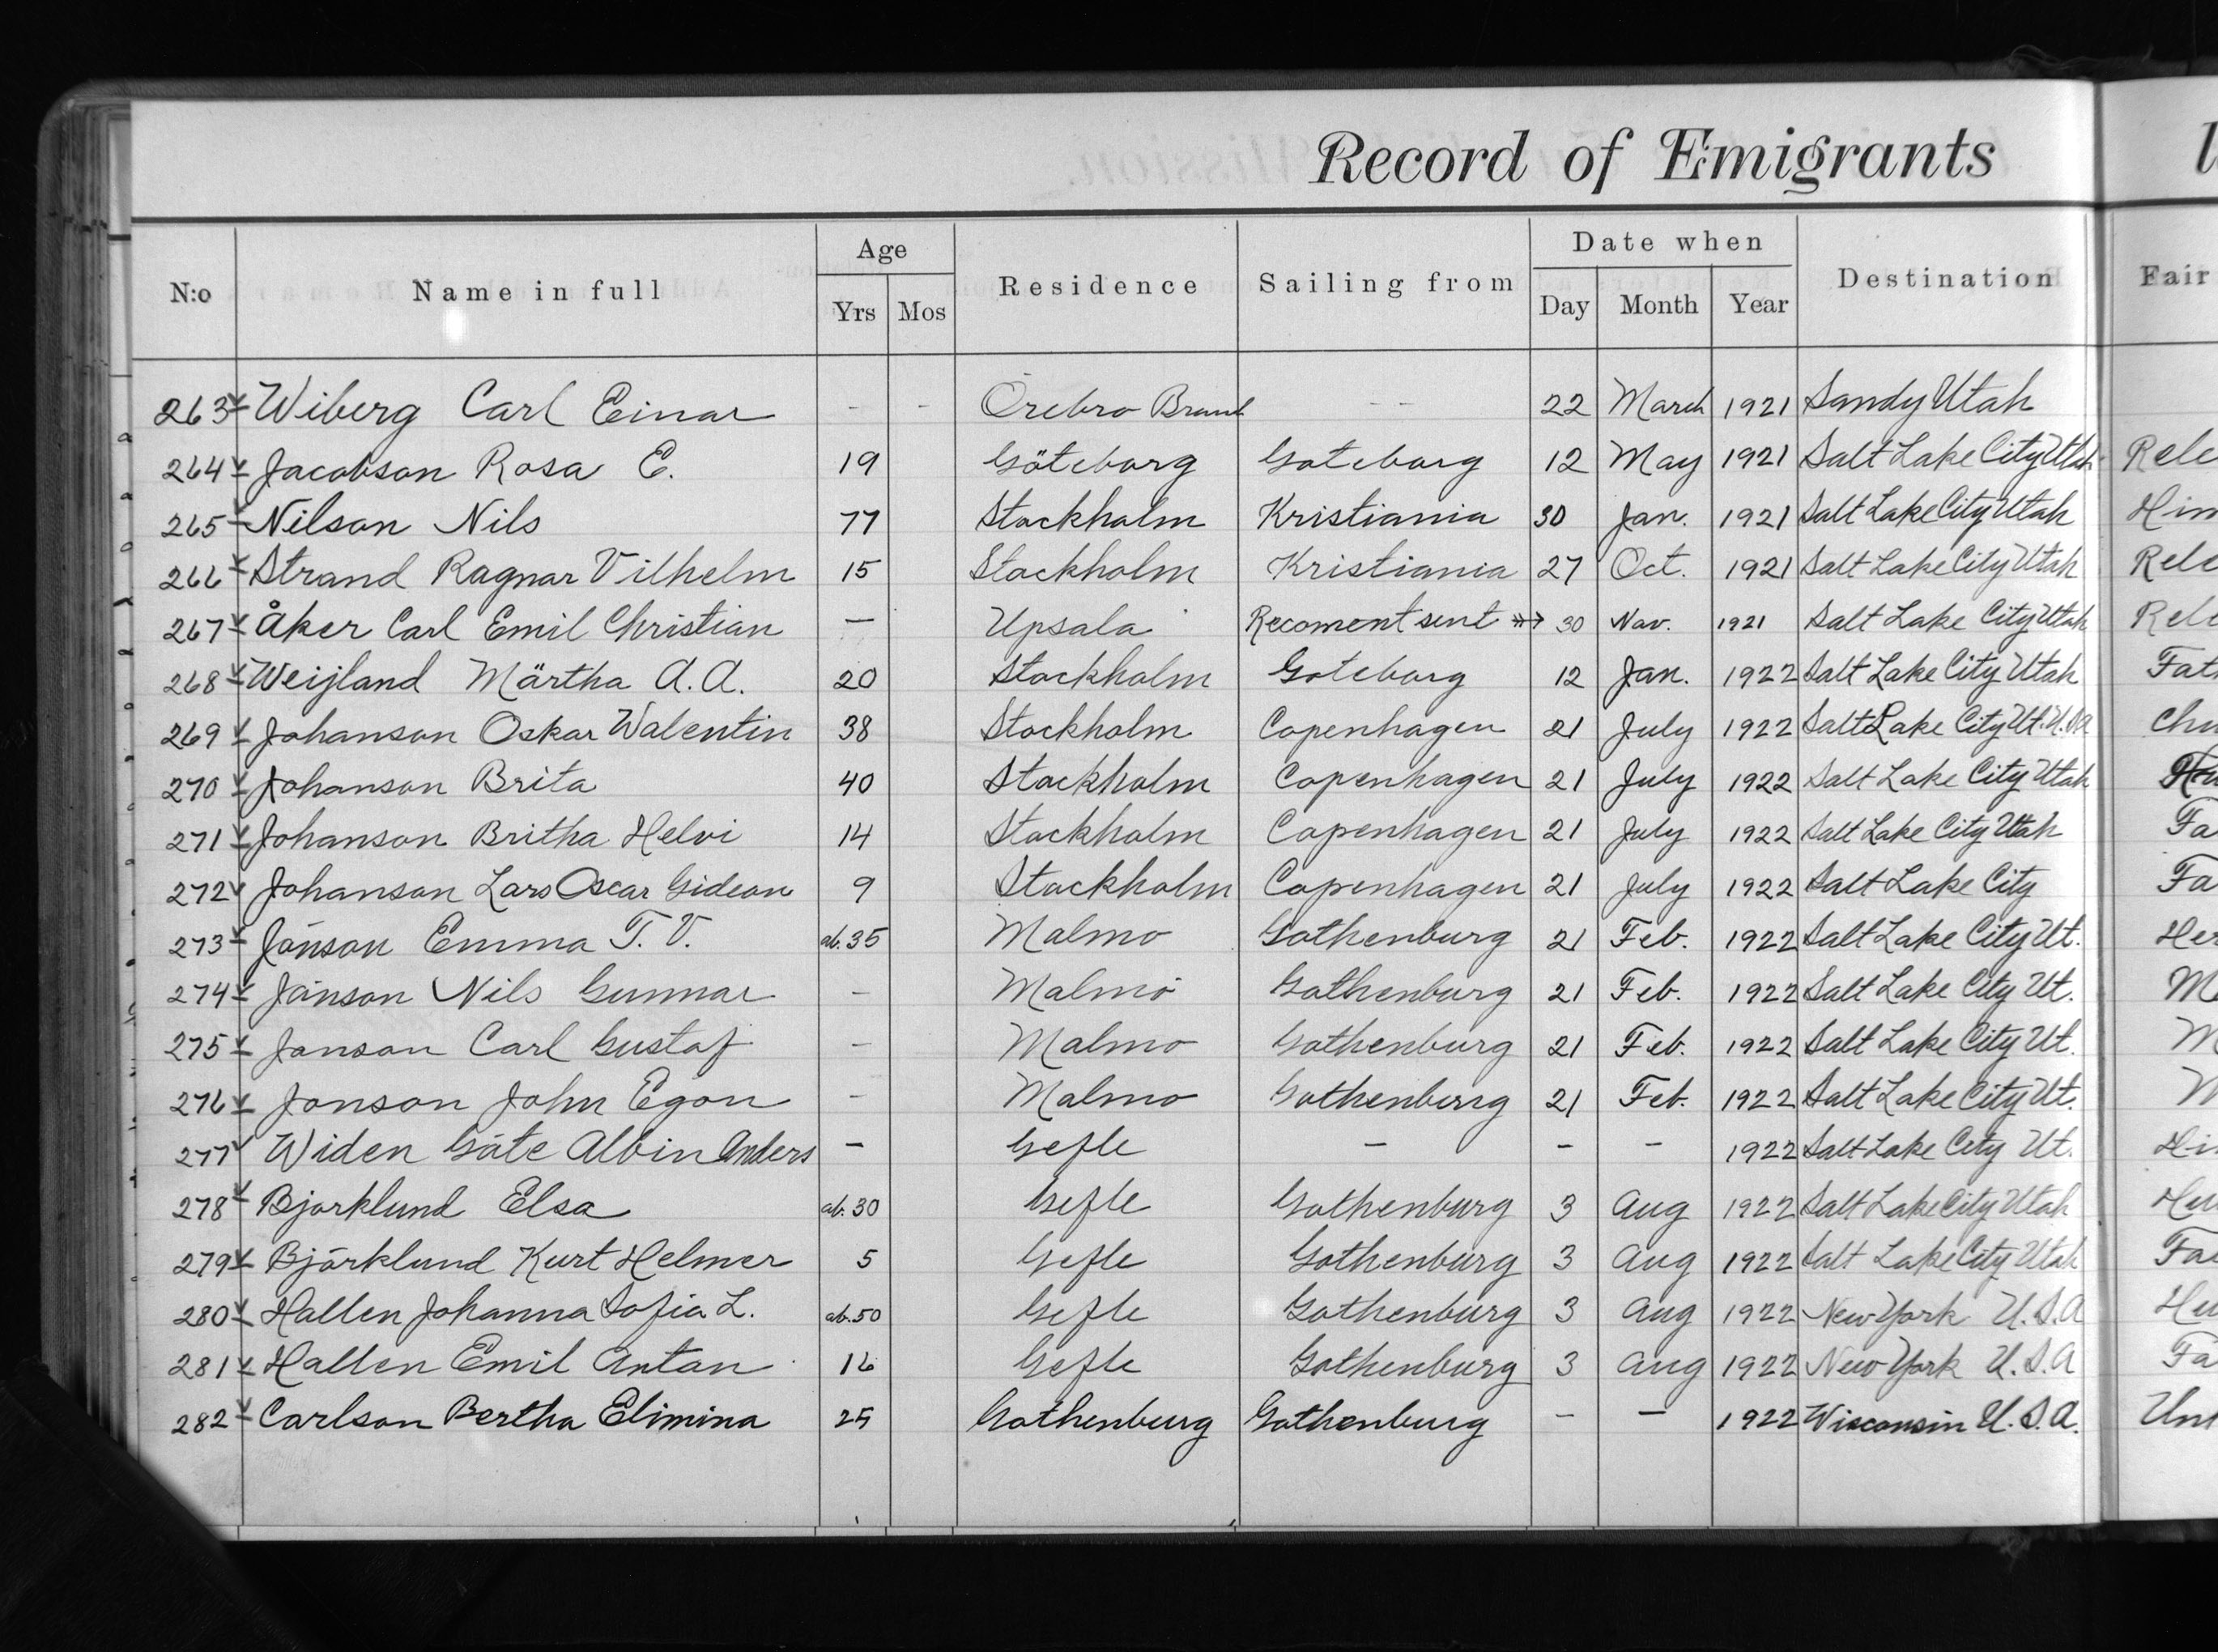 Record of Emigrants
N:o Name in full Age Yrs Mos Residence Sailing from Date when Day Month Year Destination Fair
263 Wiberg Carl Einar - - Örebro Branch - - 22 March 1921 Sandy Utah
264 Jacobson Rosa E. 19 Göteborg Goteborg 12 May 1921 Salt Lake City Utah Rele
265 Nilson Nils 77 Stockholm Kristiania 30 Jan. 1921 Salt Lake City Utah Him
266 Strand Ragnar Vilhelm 15 Stockholm Kristiania 27 Oct. 1921 Salt Lake City Utah Rele
267 Åker Carl Emil Christian — Upsala Recoment sent 30 Nov. 1921 Salt Lake City Utah Rele
268 Weijland Märtha A. A. 20 Stockholm Goteborg 12 Jan. 1922 Salt Lake City Utah Fath
269 Johanson Oskar Walentin 38 Stockholm Copenhagen 21 July 1922 Salt Lake City Ut. U.S.A Chu
270 Johanson Brita 40 Stockholm Copenhagen 21 July 1922 Salt Lake City Utah
271 Johanson Britha Helvi 14 Stockholm Copenhagen 21 July 1922 Salt Lake City Utah Fa
272 Johanson Lars Oscar Gideon 9 Stockholm Copenhagen 21 July 1922 Salt Lake City Fa
273 Jönson Emma T. V. ab. 35 Malmo Gothenburg 21 Feb. 1922 Salt Lake City Ut. Her
274 Jönson Nils Gunnar - Malmö Gothenburg 21 Feb. 1922 Salt Lake City Ut. M
275 Jonson Carl Gustaf - Malmo Gothenburg 21 Feb. 1922 Salt Lake City Ut. M
276 Jonson John Egon - Malmo Gothenburg 21 Feb. 1922 Salt Lake City Ut. M
277 Widen Göte Albin Anders - Gefle - - - 1922 Salt Lake City Ut. Hi
278 Bjorklund Elsa ab. 30 Gefle Gothenburg 3 Aug 1922 Salt Lake City Utah Hu
279 Björklund Kurt Helmer 5 Gefle Gothenburg 3 Aug 1922 Salt Lake City Utah Fa
280 Hallen Johanna Sofia L. ab. 50 Gefle Gothenburg 3 Aug 1922 New York U.S.A Hu
281 Hallen Emil Anton 16 Gefle Gothenburg 3 Aug 1922 New York U.S.A Fa
282 Carlson Bertha Elimina 25 Gothenburg Gothenburg - - 1922 Wisconsin U.S.A. Unk